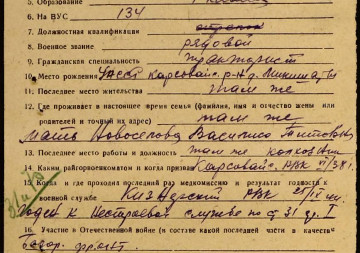 5. Образование
6. На ВУС 134
7. Должностная квалификация стрелок
8. Военное звание рядовой
9. Гражданская специальность тракторист
10. Место рождения УАССР Карсовайск. р-н д.
11. Последнее место жительства там же
12. Где проживает в настоящее время семья (фамилия, имя и отчество жены или
родителей и точный их адрес) там же
мать Новоселова Василиса
13. Последнее место работы и должность там же колхозник
14. Каким райгорвоенкоматом и когда призван Карсовайск. РВК
15. Когда и где проходил последний раз медкомиссию и результат годности к
военной службе Кизнерский РВК
Годен к нестроевой службе по ст 31 гр. I
16. Участие в Отечественной войне (в составе какой последней части в качестве
фронт.